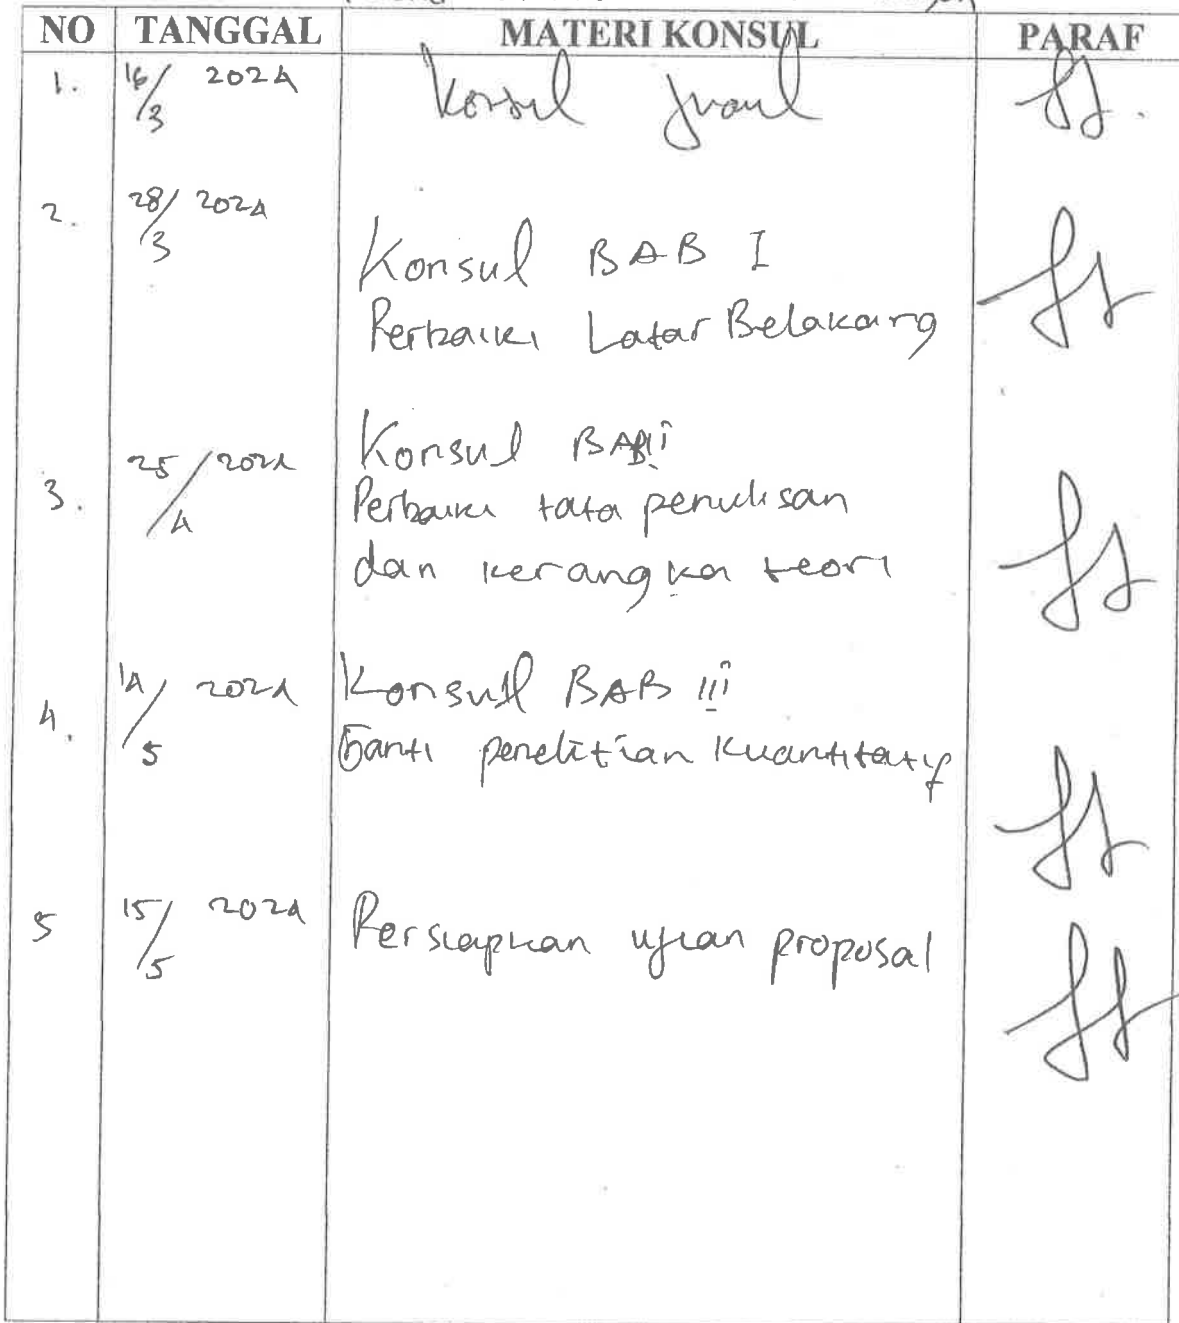 NO TANGGAL MATERI KONSUL PARAF
1. 16/3 2024 Konsul Judul
2. 28/3 2024
Konsul BAB I
Perbaiki Latar Belakang
Konsul BAB II
3. 25/4 2024 Perbaiki tata penulisan
dan kerangka teori
4. 14/5 2024 Konsul BAB III
Ganti penelitian kuantitatif
5 15/5 2024 Persiapkan ujian proposal